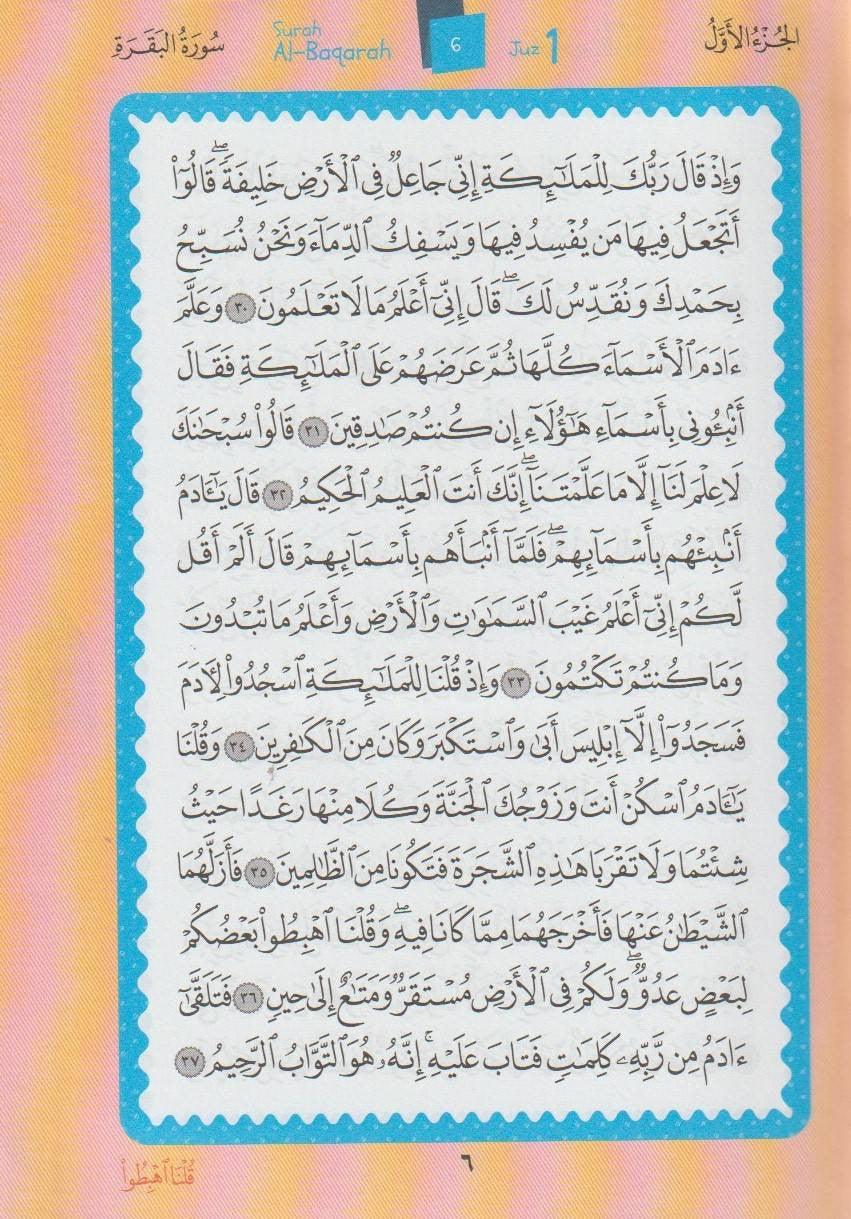 سُورَةُ البَقَرَةِ
Surah
Al-Baqarah
6
Juz 1
الجُزْءُ الأَوَّلُ
وَإِذْ قَالَ رَبُّكَ لِلْمَلَٰٓئِكَةِ إِنِّى جَاعِلٌ فِى ٱلْأَرْضِ خَلِيفَةً ۖ قَالُوٓا۟
أَتَجْعَلُ فِيهَا مَن يُفْسِدُ فِيهَا وَيَسْفِكُ ٱلدِّمَآءَ وَنَحْنُ نُسَبِّحُ
بِحَمْدِكَ وَنُقَدِّسُ لَكَ ۖ قَالَ إِنِّىٓ أَعْلَمُ مَا لَا تَعْلَمُونَ ٣٠ وَعَلَّمَ
ءَادَمَ ٱلْأَسْمَآءَ كُلَّهَا ثُمَّ عَرَضَهُمْ عَلَى ٱلْمَلَٰٓئِكَةِ فَقَالَ
أَنۢبِـُٔونِى بِأَسْمَآءِ هَٰٓؤُلَآءِ إِن كُنتُمْ صَٰدِقِينَ ٣١ قَالُوا۟ سُبْحَٰنَكَ
لَا عِلْمَ لَنَآ إِلَّا مَا عَلَّمْتَنَآ ۖ إِنَّكَ أَنتَ ٱلْعَلِيمُ ٱلْحَكِيمُ ٣٢ قَالَ يَٰٓـَٔادَمُ
أَنۢبِئْهُم بِأَسْمَآئِهِمْ ۖ فَلَمَّآ أَنۢبَأَهُم بِأَسْمَآئِهِمْ قَالَ أَلَمْ أَقُل
لَّكُمْ إِنِّىٓ أَعْلَمُ غَيْبَ ٱلسَّمَٰوَٰتِ وَٱلْأَرْضِ وَأَعْلَمُ مَا تُبْدُونَ
وَمَا كُنتُمْ تَكْتُمُونَ ٣٣ وَإِذْ قُلْنَا لِلْمَلَٰٓئِكَةِ ٱسْجُدُوا۟ لِـَٔادَمَ
فَسَجَدُوٓا۟ إِلَّآ إِبْلِيسَ أَبَىٰ وَٱسْتَكْبَرَ وَكَانَ مِنَ ٱلْكَٰفِرِينَ ٣٤ وَقُلْنَا
يَٰٓـَٔادَمُ ٱسْكُنْ أَنتَ وَزَوْجُكَ ٱلْجَنَّةَ وَكُلَا مِنْهَا رَغَدًا حَيْثُ
شِئْتُمَا وَلَا تَقْرَبَا هَٰذِهِ ٱلشَّجَرَةَ فَتَكُونَا مِنَ ٱلظَّٰلِمِينَ ٣٥ فَأَزَلَّهُمَا
ٱلشَّيْطَٰنُ عَنْهَا فَأَخْرَجَهُمَا مِمَّا كَانَا فِيهِ ۖ وَقُلْنَا ٱهْبِطُوا۟ بَعْضُكُمْ
لِبَعْضٍ عَدُوٌّ ۖ وَلَكُمْ فِى ٱلْأَرْضِ مُسْتَقَرٌّ وَمَتَٰعٌ إِلَىٰ حِينٍ ٣٦ فَتَلَقَّىٰٓ
ءَادَمُ مِن رَّبِّهِۦ كَلِمَٰتٍ فَتَابَ عَلَيْهِ ۚ إِنَّهُۥ هُوَ ٱلتَّوَّابُ ٱلرَّحِيمُ ٣٧
٦
قُلْنَا ٱهْبِطُوا۟